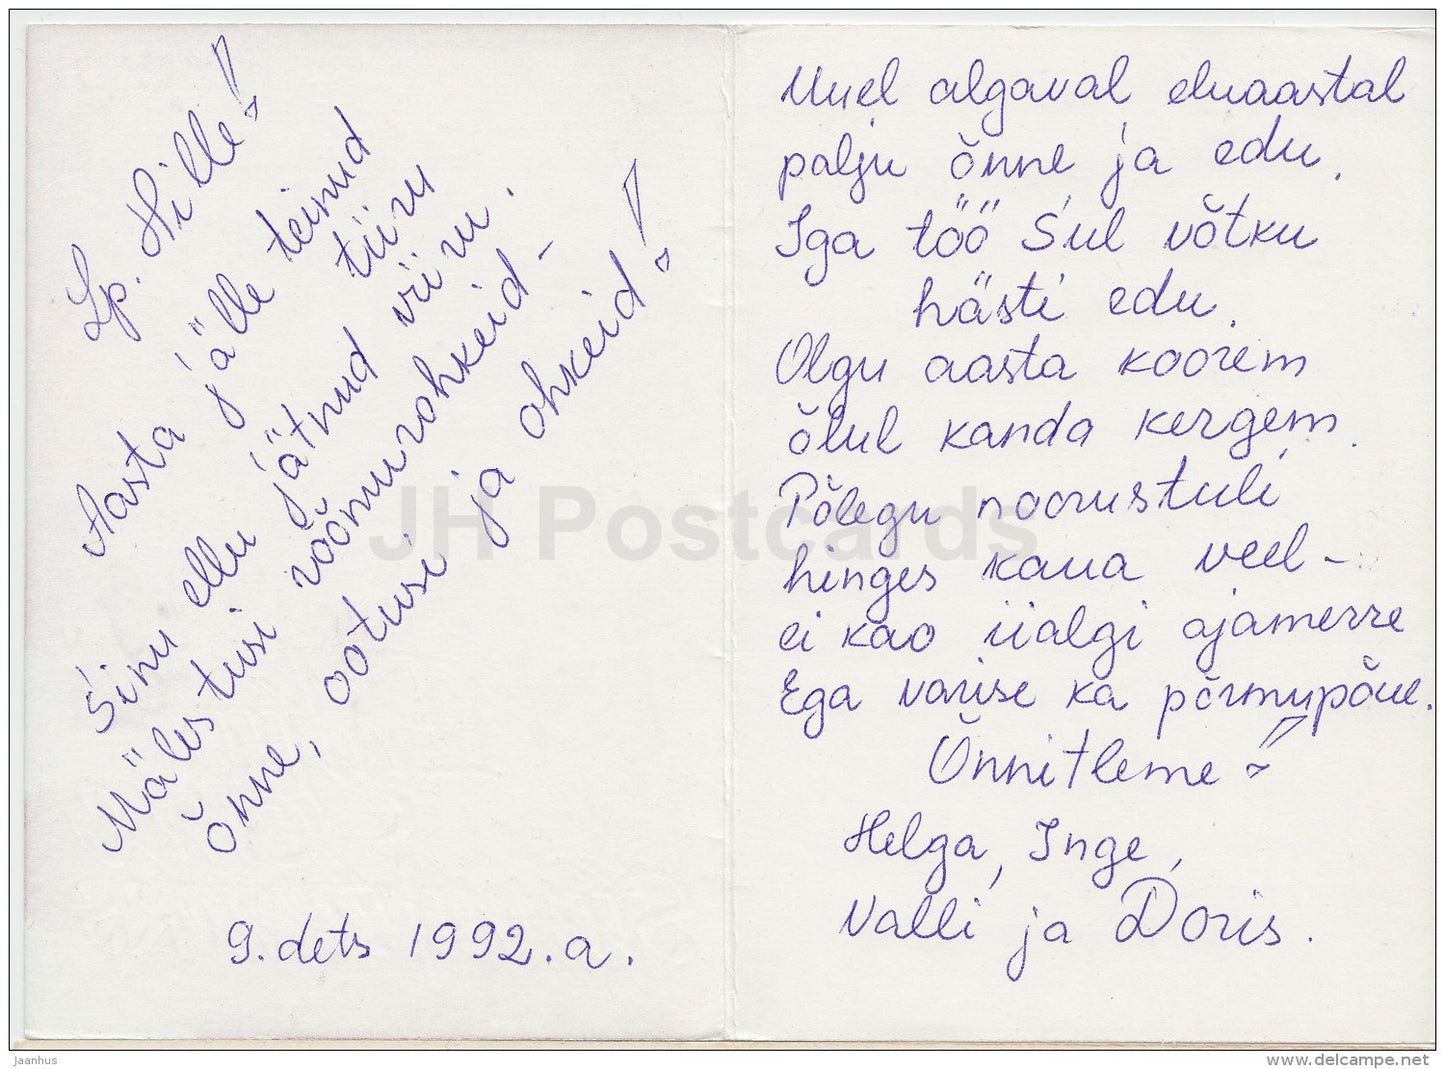 Lp. Hille!
Aasta jälle teinud
tiiru
Sinu ellu jätnud viiru.
Mälestusi rõõmurohkeid -
õnne, ootusi ja ohkeid!
9. dets 1992. a.
Uuel algaval eluaastal
palju õnne ja edu.
Iga töö Sul võtku
hästi edu.
Olgu aasta koorem
õlul kanda kergem.
Põlegu noorustuli
hinges kaua veel -
ei kao iialgi ajamerre
Ega varise ka põrmupõue.
Õnnitleme!
Helga, Inge,
Valli ja Doris.
JH Postcards
jaanhus
www.delcampe.net